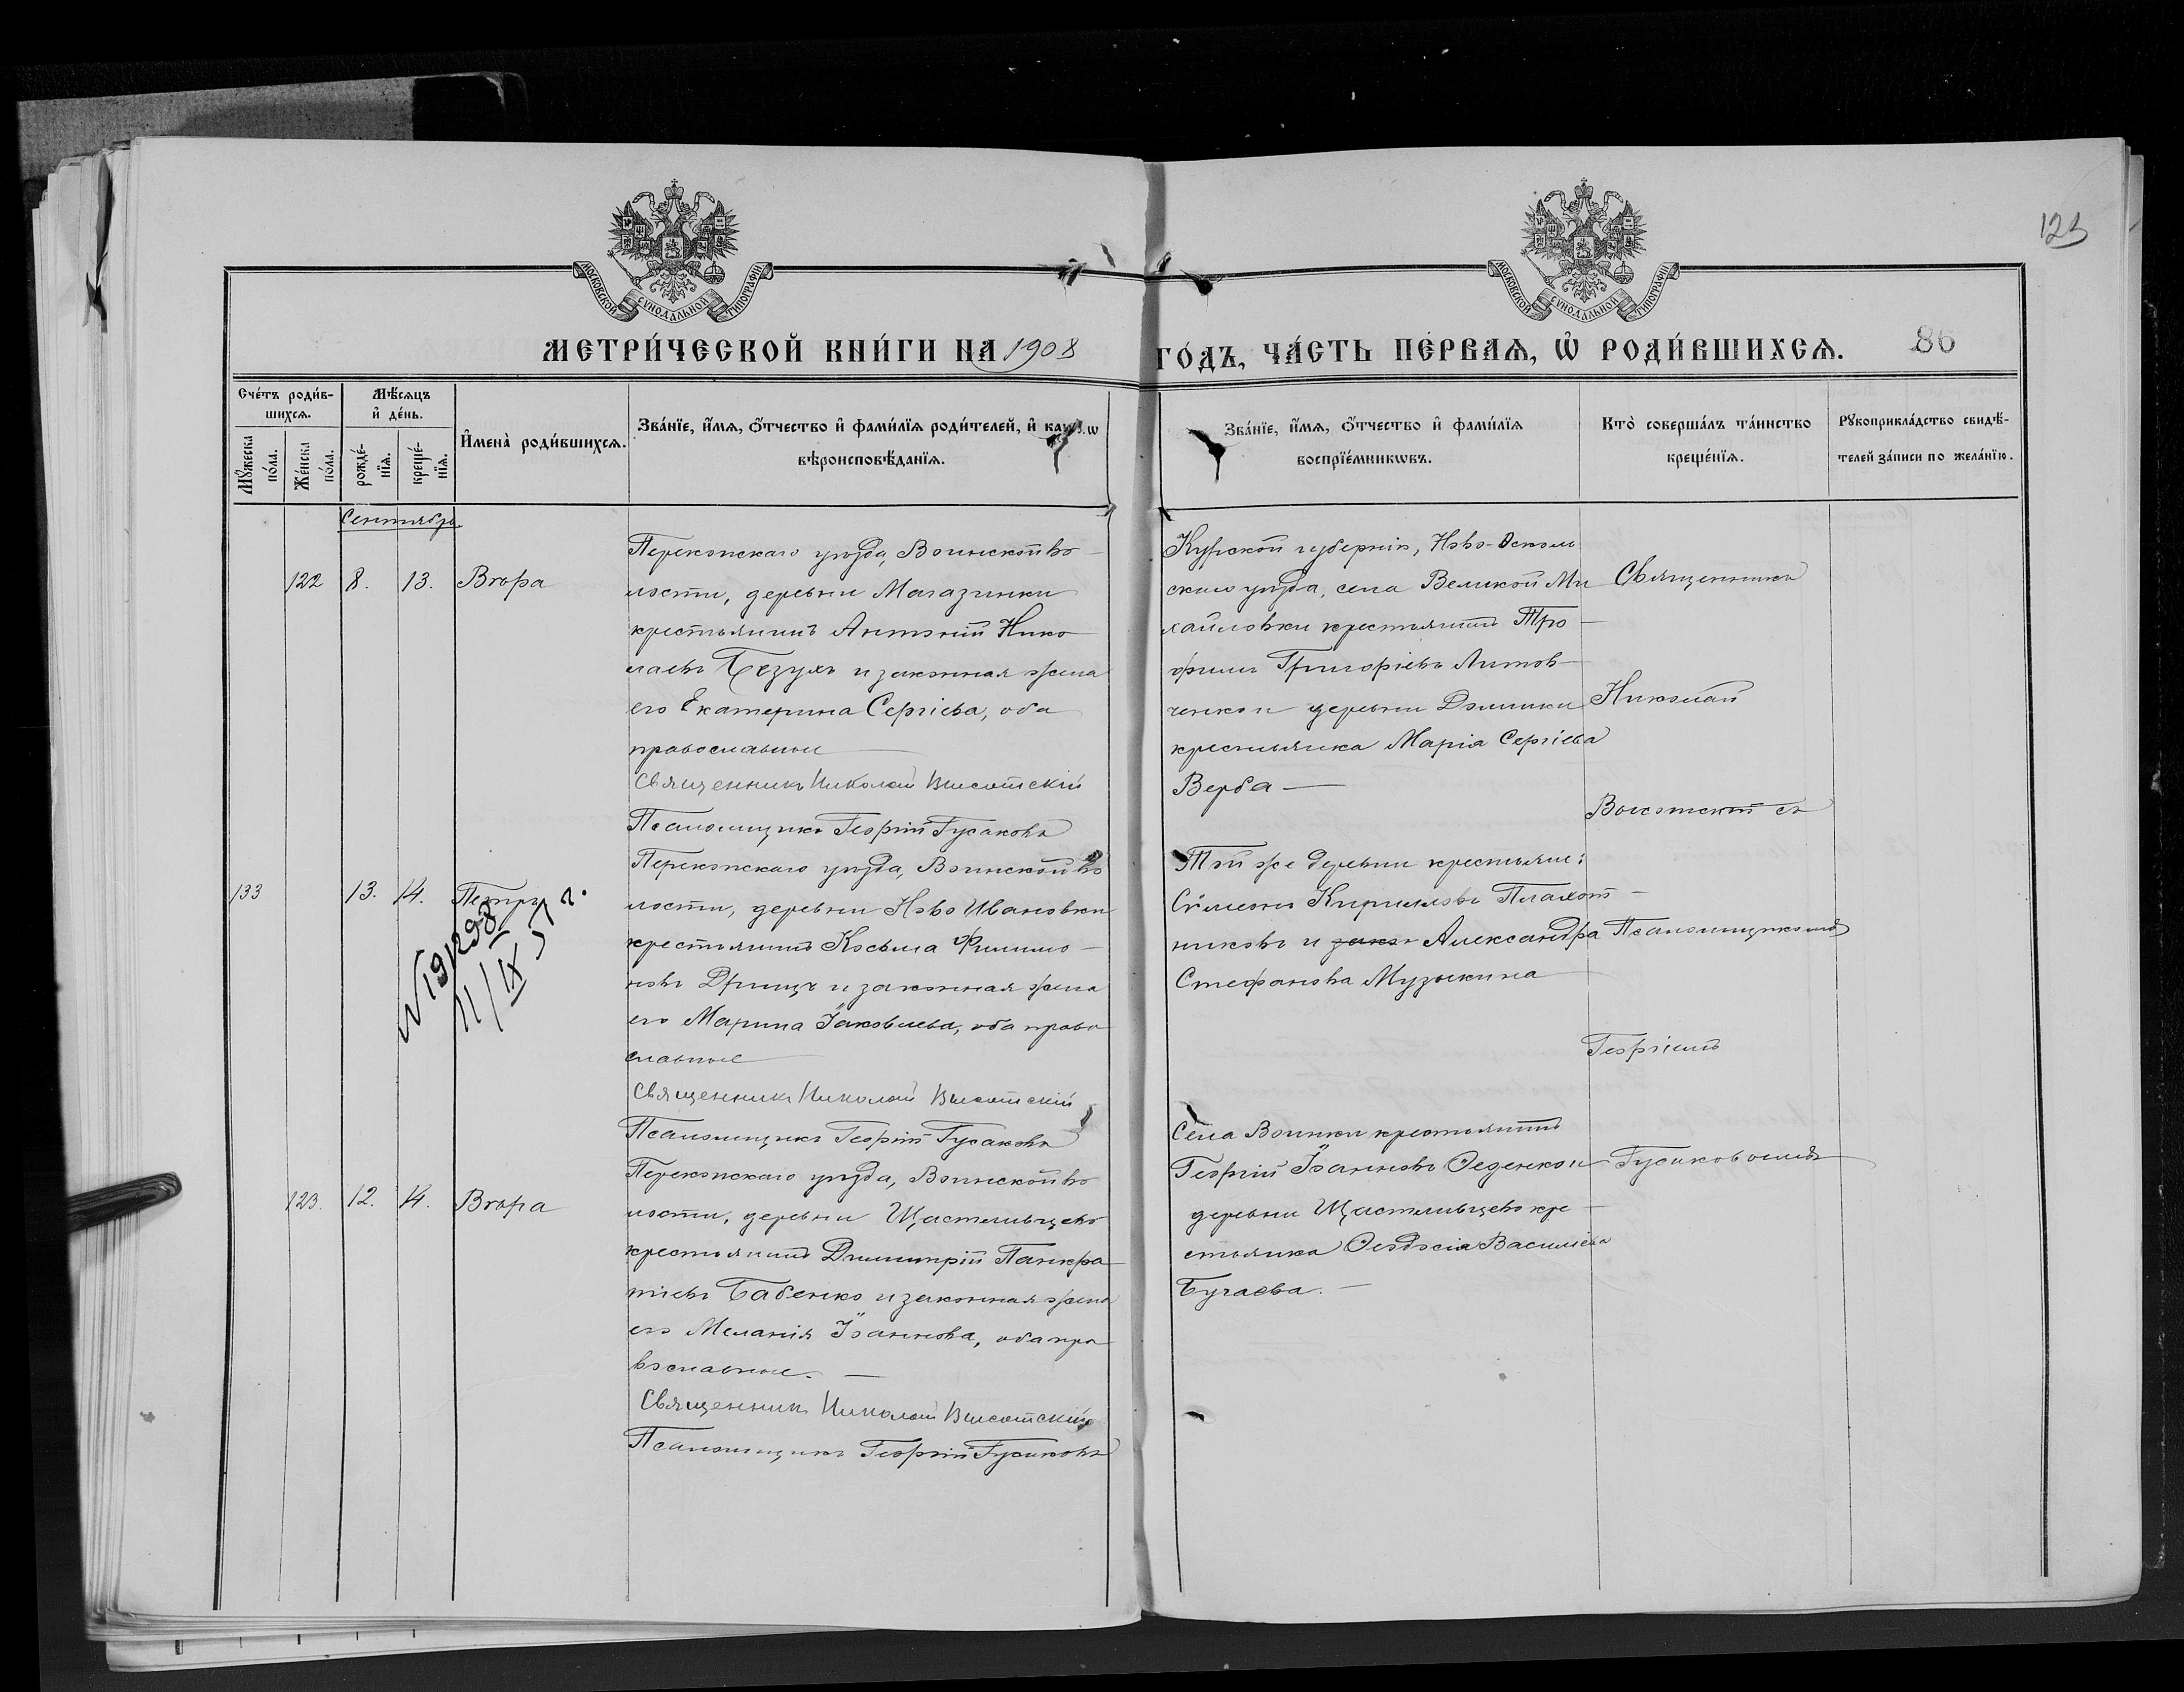 МОСКОВСКОЙ СѴНОДАЛЬНОЙ ТИПОГРАФІИ
МОСКОВСКОЙ СѴНОДАЛЬНОЙ ТИПОГРАФІИ
123
МЕТРИ́ЧЕСКОЙ КНИ́ГИ НА 1908 ГО́ДЪ, ЧА́СТЬ ПЕ́РВАѦ, Ѡ҆ РОДИ́ВШИХСѦ.
86
Сче́тъ роди́в-
шихсѧ.
Мꙋ́жеска
по́ла.
Же́нска
по́ла.
Мѣ́сѧцъ
и҆ де́нь.
рожде́-
нїѧ.
креще́-
нїѧ.
И҆мена̀ роди́вшихсѧ.
Зва́нїе, и҆́мѧ, ѻ҆́тчество и҆ фами́лїѧ роди́телей, и҆
вѣроисповѣ́данїѧ.
Зва́нїе, и҆́мѧ, ѻ҆́тчество и҆ фами́лїѧ
воспрїе́мникѡвъ.
Кто̀ соверша́лъ та́инство
креще́нїѧ.
Рꙋкоприкла́дство свидѣ́-
телей за́писи по жела́нїю.
Сентябрь
122 8. 13. Вѣра
Перекопскаго уѣзда, Воинской во
лости, деревни Магазинки
крестьянинъ Антоній Нико
лаевъ Безухъ и законная жена
его Екатерина Сергіева, оба
православные
Священникъ Николай Высотскій
Псаломщикъ Георгій Гусаковъ
Курской губерніи, Ново-Осколь
скаго уѣзда, села Великой Ми
хайловки крестьянинъ Тро
фимъ Григоріевъ Литов
ченко и деревни
крестьянка Марія Сергіева
Верба
Священникъ
Николай
Высотскій съ
133 13. 14. Петръ
N 19/298
11/IX 57 г.
Перекопскаго уѣзда, Воинской во
лости, деревни Ново Ивановки
крестьянинъ Косьма Филимо
новъ Дрищъ и законная жена
его Марина Іаковлева, оба право
славные
Священникъ Николай Высотскій
Псаломщикъ Георгій Гусаковъ
Той же деревни крестьяне:
Сѵмеонъ Кирилловъ Плахот
никовъ и закон Александра
Стефанова Музыкина
Псаломщикомъ
Георгіемъ
Гусаковымъ
123. 12. 14. Вѣра
Перекопскаго уѣзда, Воинской во
лости, деревни Щастливцево
крестьянинъ Димитрій Панкра
тіевъ Бабенко и законная жена
его Меланія Іоаннова, оба пра
вославные.
Священникъ Николай Высотскій
Псаломщикъ Георгій Гусаковъ
Села Воинки крестьянинъ
Георгій Іоанновъ Ѳеденко и
деревни Щастливцево кре
стьянка Ѳеодосія Василіева
Бугаева.